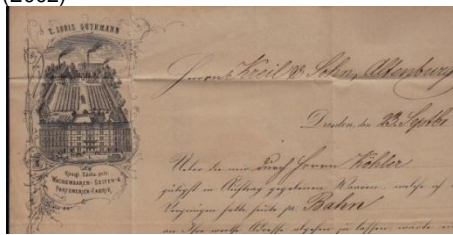 (2002)
T. LOUIS GUTHMANN
Königl. Sächs. priv.
WACHSWAAREN- SEIFEN- &
PARFUMERIEN-FABRIK
Herrn Kroil & Sohn, Altenburg
Dresden, den 23. Septbr
Unter die mir durch Herrn Köhler
gütigst in Auftrag gegebenen Waaren, welche ich
Vergnügen hatte heute pr. Bahn
an Ihre werthe Adresse abgehen zu lassen,